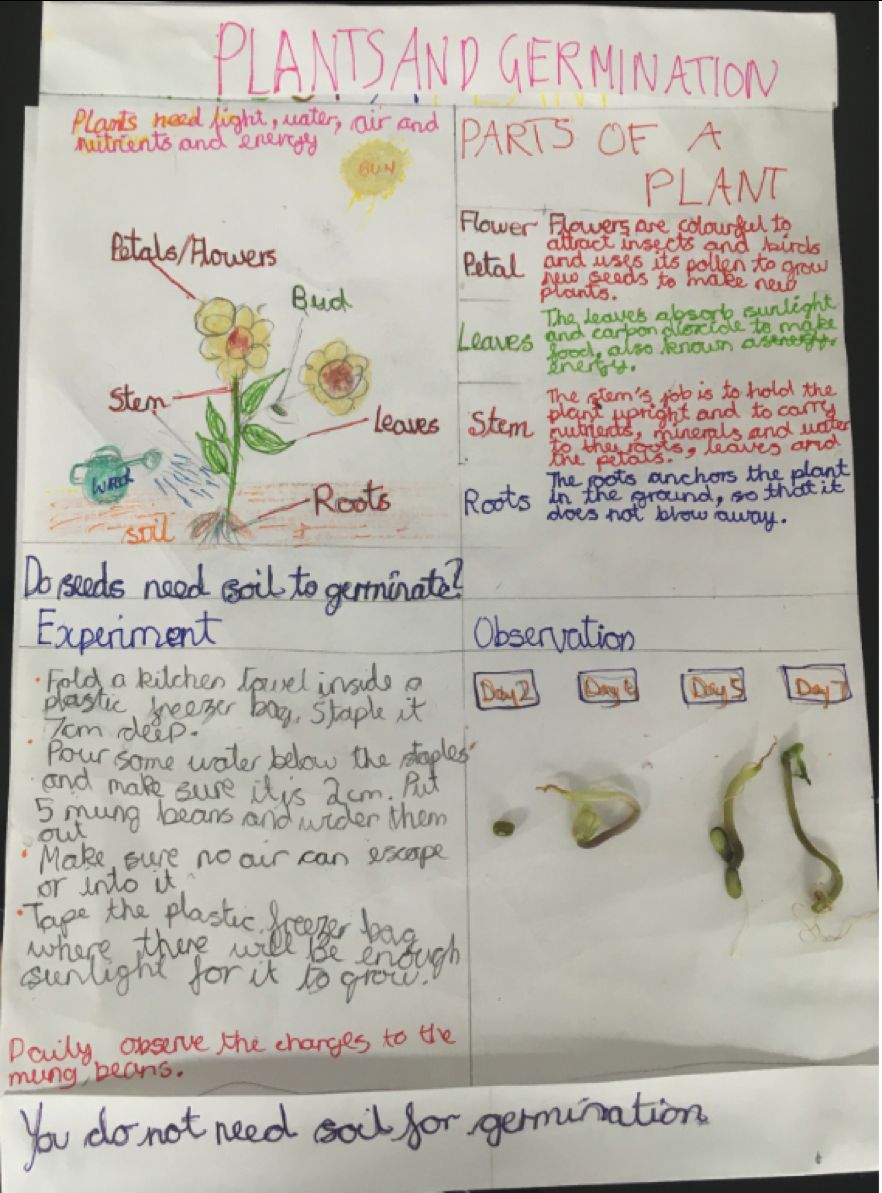 PLANTS AND GERMINATION
Plants need light, water, air and
nutrients and energy
SUN
Petals/Flowers
Bud
Stem
Leaves
Roots
soil
PARTS OF A
PLANT
Flower
Petal
Flowers are colourful to
attract insects and birds
and uses its pollen to grow
new seeds to make new
plants.
Leaves
The leaves absorb sunlight
and carbon dioxcide to make
food, also known as energy.
energy.
Stem
The stem's job is to hold the
plant upright and to carry
nutrients, minerals and water
to the roots, leaves and
the petals.
Roots
The roots anchors the plant
in the ground, so that it
does not blow away.
Do seeds need soil to germinate?
Experiment
• Fold a kitchen towel inside a
plastic freezer bag. Staple it
7cm deep.
• Pour some water below the staples
and make sure it is 2cm. Put
5 mung beans and wider them
out
• Make sure no air can escape
or into it
• Tape the plastic freezer bag
where there will be enough
sunlight for it to grow.
Daily observe the changes to the
mung beans.
Observation
Day 2 Day Day 5 Day 7
You do not need soil for germination